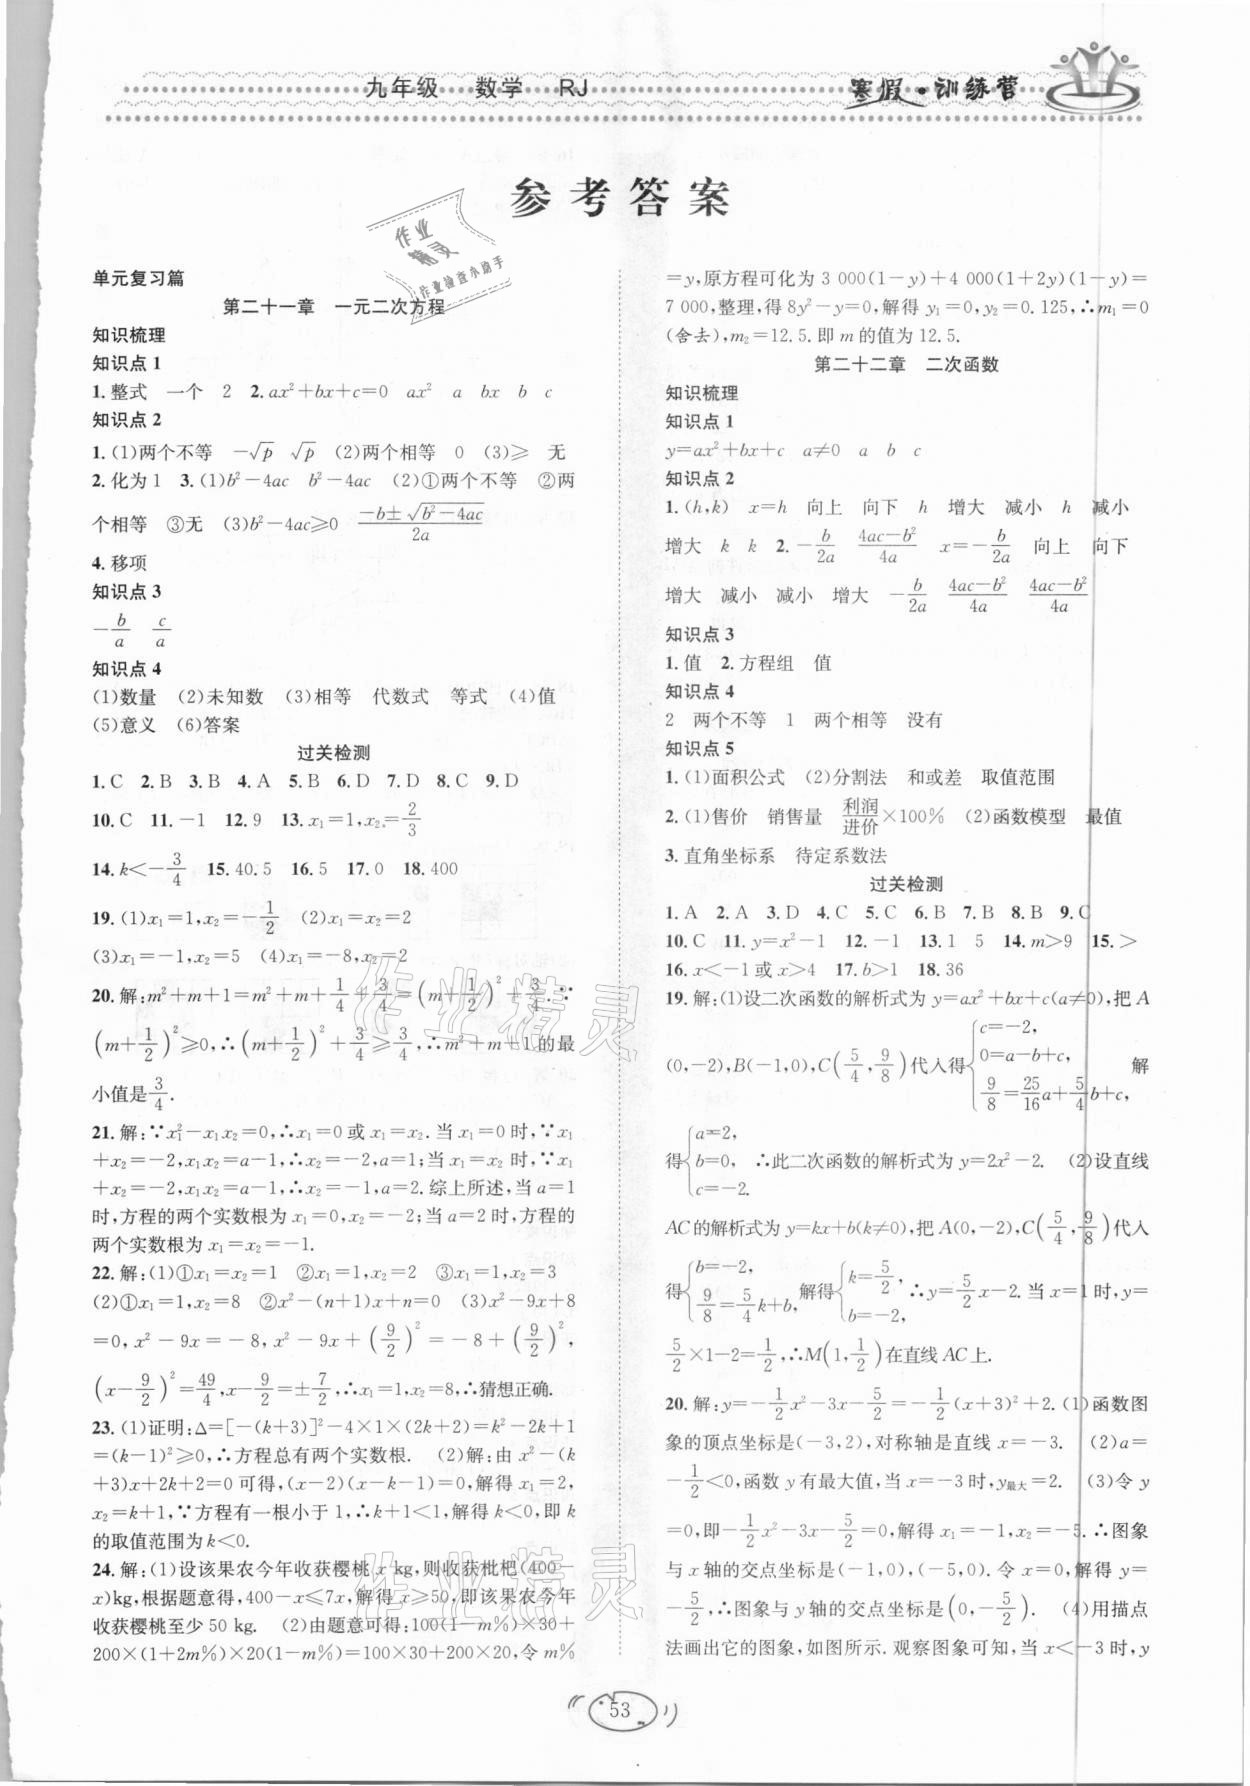 九年级 数学 RJ
寒假·训练营
参考答案
单元复习篇
第二十一章 一元二次方程
知识梳理
知识点 1
1.整式 一个 2 2.ax²+bx+c=0 ax² a bx b c
知识点 2
1.(1)两个不等 -√p √p (2)两个相等 0 (3)≥ 无
2.化为1 3.(1)b²-4ac b²-4ac (2)①两个不等 ②两
个相等 ③无 (3)b²-4ac≥0 (-b±√(b²-4ac))/2a
4.移项
知识点 3
-b/a c/a
知识点 4
(1)数量 (2)未知数 (3)相等 代数式 等式 (4)值
(5)意义 (6)答案
过关检测
1.C 2.B 3.B 4.A 5.B 6.D 7.D 8.C 9.D
10.C 11.-1 12.9 13.x₁=1,x₂=2/3
14.k<-3/4 15.40.5 16.5 17.0 18.400
19.(1)x₁=1,x₂=-1/2 (2)x₁=x₂=2
(3)x₁=-1,x₂=5 (4)x₁=-8,x₂=2
20.解:m²+m+1=m²+m+1/4+3/4=(m+1/2)²+3/4.∵
(m+1/2)²≥0,∴(m+1/2)²+3/4≥3/4,∴m²+m+1的最
小值是3/4.
21.解:∵x₁²-x₁x₂=0,∴x₁=0或x₁=x₂.当x₁=0时,∵x₁
+x₂=-2,x₁x₂=a-1,∴x₂=-2,a=1;当x₁=x₂时,∵x₁
+x₂=-2,x₁x₂=a-1,∴x₂=-1,a=2.综上所述,当a=1
时,方程的两个实数根为x₁=0,x₂=-2;当a=2时,方程的
两个实数根为x₁=x₂=-1.
22.解:(1)①x₁=x₂=1 ②x₁=1,x₂=2 ③x₁=1,x₂=3
(2)①x₁=1,x₂=8 ②x²-(n+1)x+n=0 (3)x²-9x+8
=0,x²-9x=-8,x²-9x+(9/2)²=-8+(9/2)²,
(x-9/2)²=49/4,x-9/2=±7/2,∴x₁=1,x₂=8,∴猜想正确.
23.(1)证明:Δ=[-(k+3)]²-4×1×(2k+2)=k²-2k+1
=(k-1)²≥0,∴方程总有两个实数根. (2)解:由x²-(k
+3)x+2k+2=0可得,(x-2)(x-k-1)=0,解得x₁=2,
x₂=k+1,∵方程有一根小于1,∴k+1<1,解得k<0,即k
的取值范围为k<0.
24.解:(1)设该果农今年收获樱桃x kg,则收获枇杷(400-
x)kg,根据题意得,400-x≤7x,解得x≥50,即该果农今年
收获樱桃至少50 kg. (2)由题意可得:100(1-m%)×30+
200×(1+2m%)×20(1-m%)=100×30+200×20,令m%
=y,原方程可化为3 000(1-y)+4 000(1+2y)(1-y)=
7 000,整理,得8y²-y=0,解得y₁=0,y₂=0.125,∴m₁=0
(舍去),m₂=12.5.即m的值为12.5.
第二十二章 二次函数
知识梳理
知识点 1
y=ax²+bx+c a≠0 a b c
知识点 2
1.(h,k) x=h 向上 向下 h 增大 减小 h 减小
增大 k k 2.-b/2a (4ac-b²)/4a x=-b/2a 向上 向下
增大 减小 减小 增大 -b/2a (4ac-b²)/4a (4ac-b²)/4a
知识点 3
1.值 2.方程组 值
知识点 4
2 两个不等 1 两个相等 没有
知识点 5
1.(1)面积公式 (2)分割法 和或差 取值范围
2.(1)售价 销售量 利润/进价×100% (2)函数模型 最值
3.直角坐标系 待定系数法
过关检测
1.A 2.A 3.D 4.C 5.C 6.B 7.B 8.B 9.C
10.C 11.y=x²-1 12.-1 13.1 5 14.m>9 15.>
16.x<-1或x>4 17.b>1 18.36
19.解:(1)设二次函数的解析式为y=ax²+bx+c(a≠0),把A
(0,-2),B(-1,0),C(5/4,9/8)代入得{c=-2, 0=a-b+c, 9/8=25/16a+5/4b+c, 解
得{a=2, b=0, c=-2. ∴此二次函数的解析式为y=2x²-2. (2)设直线
AC的解析式为y=kx+b(k≠0),把A(0,-2),C(5/4,9/8)代入
得{b=-2, 9/8=5/4k+b, 解得{k=5/2, b=-2, ∴y=5/2x-2.当x=1时,y=
5/2×1-2=1/2,∴M(1,1/2)在直线AC上.
20.解:y=-1/2x²-3x-5/2=-1/2(x+3)²+2.(1)函数图
象的顶点坐标是(-3,2),对称轴是直线x=-3. (2)a=
-1/2<0,函数y有最大值,当x=-3时,y最大=2. (3)令y
=0,即-1/2x²-3x-5/2=0,解得x₁=-1,x₂=-5.∴图象
与x轴的交点坐标是(-1,0),(-5,0).令x=0,解得y=
-5/2,∴图象与y轴的交点坐标是(0,-5/2). (4)用描点
法画出它的图象,如图所示.观察图象可知,当x<-3时,y
53
作业精灵
作业检查小助手
作业精灵
作业精灵